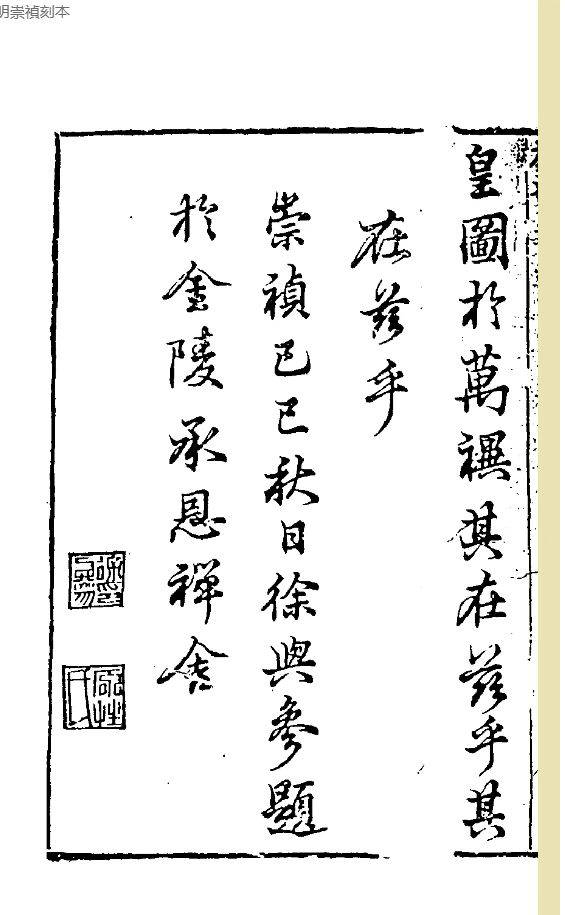 明崇禎刻本
皇圖於萬禩其在茲乎其
在茲乎
崇禎己巳秋日徐與參題
於金陵承恩禪舍